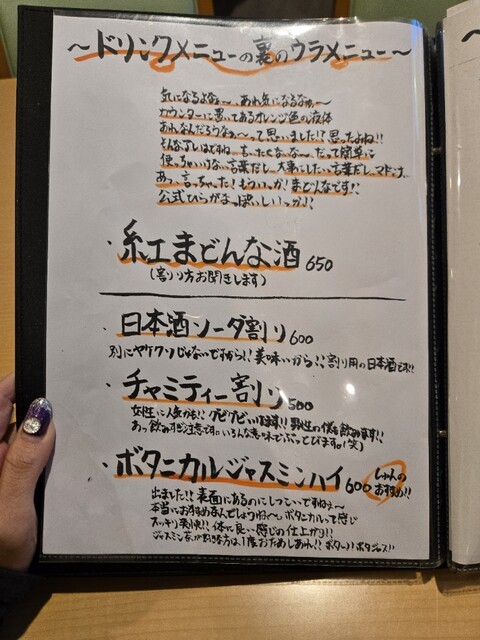 〜ドリンクメニューの裏のウラメニュー〜
気になるよなぁ〜、あれ気になるなぁ〜
カウンターに置いてあるオレンジ色の液体
あれなんだろうなぁ〜って思いました!?思ったよね!!
そんな
だって簡単に
使っちゃいけない言葉だし、大事にしたい言葉だし、マドンナ、
あっ、言っちゃった!もういっか!まどんなです!!
公式ひらがなっぽいしいっか!!
・紅まどんな酒 650
(割り方お聞きします)
・日本酒ソーダ割り 600
別にヤケクソじゃないですから!!美味いから!!割り用の日本酒です!!
・チャミティー割り 500
女性に人気かも!!グビグビいけます!!男性の僕も飲みます!!
あっ飲みすぎ注意です。いろんな意味でぶっとびます。(笑)
・ボタニカルジャスミンハイ 600 しゅんのおすすめ!!
出ました!!表面にあるのにしつこいですねぇ〜
本当におすすめなんでしょうね〜し ボタニカルって感じ
スッキリ爽快!!体に良い感じの仕上がり!!
ジャスミン茶が好きな方は、1度おためしあれ!!ボタ〜!!ボタジャス!!